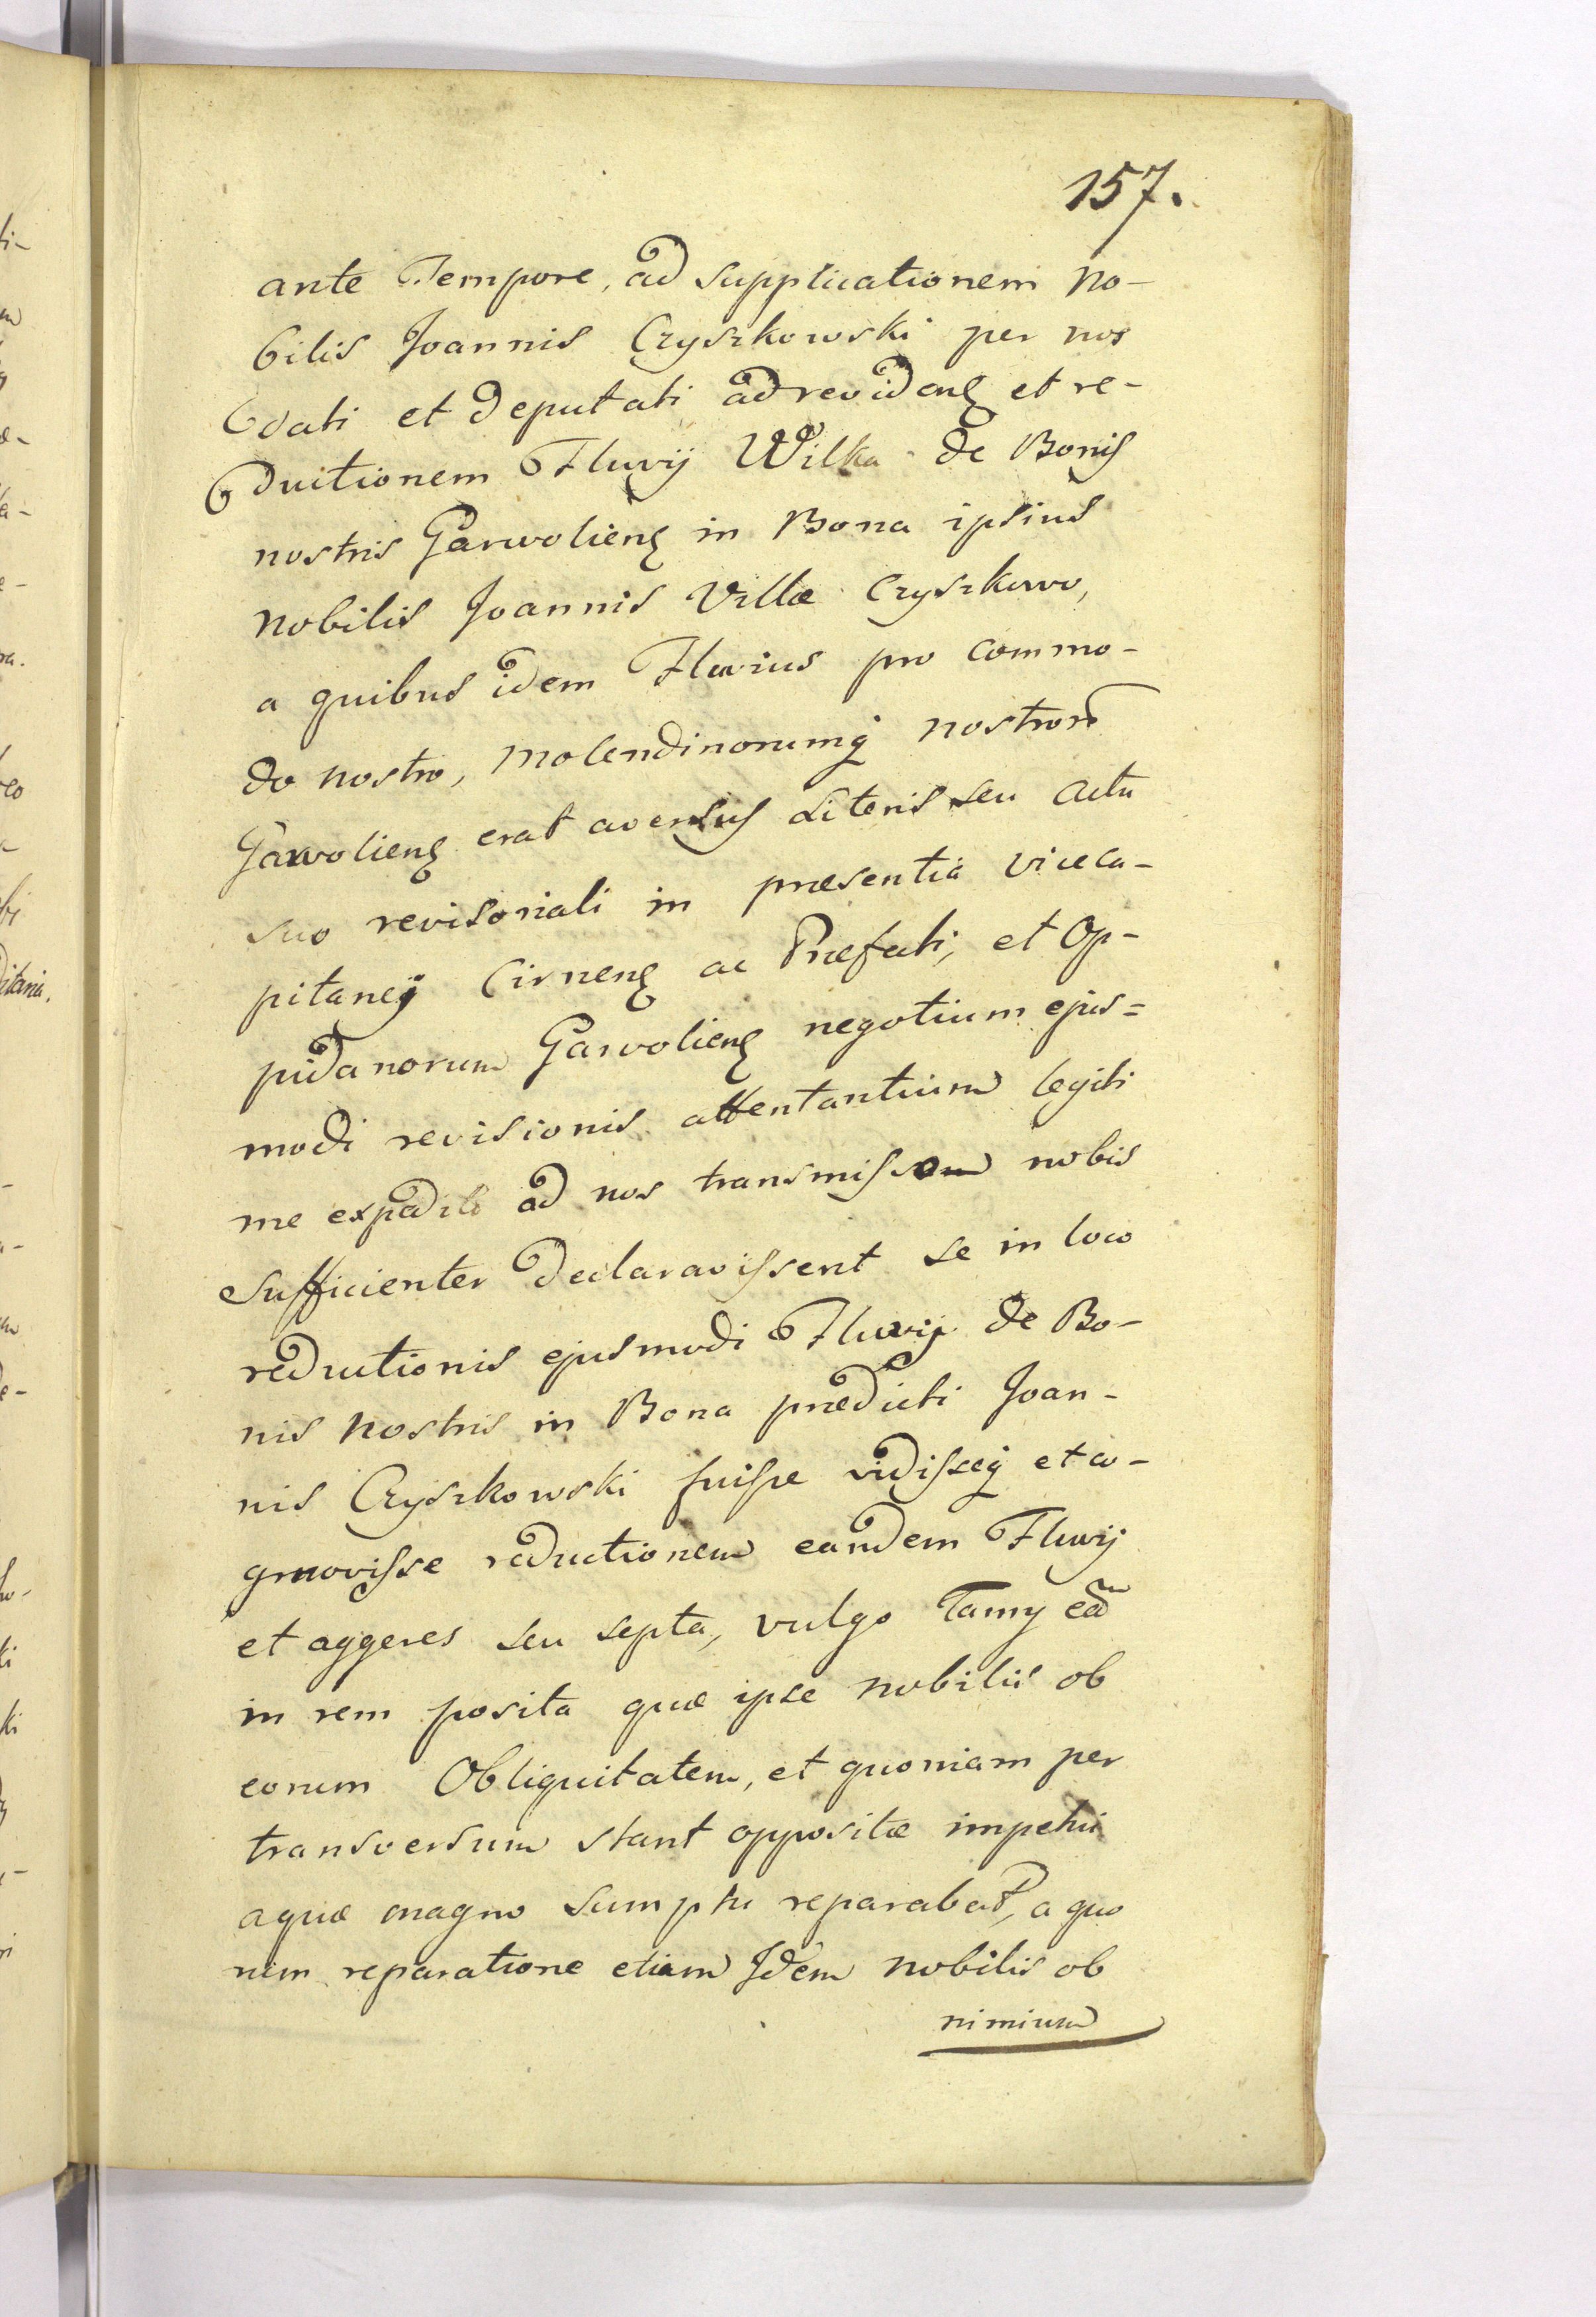 157.
ante Tempore, ad supplicationem no-
bilis Joannis Czyszkowski per nos
dati et deputati ad revidenę et re-
ductionem Fluvij Wilka de Bonis
nostris Garwolienę in Bona ipsius
nobilis Joannis Villæ Czyszkowo,
a quibus idem Fluvius pro commo-
do nostro, molendinorumq nostror
Garwolienę erat aversus Literis seu actu
suo revisoriali in præsentia viceca-
pitanej Cirnenę ac Præfecti, et Op-
pidanorum Garwolienę negotium ejus=
modi revisionis attentantium legiti
me expedito ad nos transmisso nobis
sufficienter declaravissent se in loco
reductionis ejusmodi Fluvij de Bo-
nis nostris in Bona prædicti Joan-
nis Czyszkowski fuisse vidisseq et co-
gnovisse reductionem eandem Fluvij
et aggeres seu septa, vulgo Tamy eã
in rem posita quæ ipse nobilis ob
eorum Obliquitatem, et quoniam per
transversum stant oppositæ impetui
aquæ magno sumptu reparabat, a quo
rum reparatione etiam Idem nobilis ob
nimium